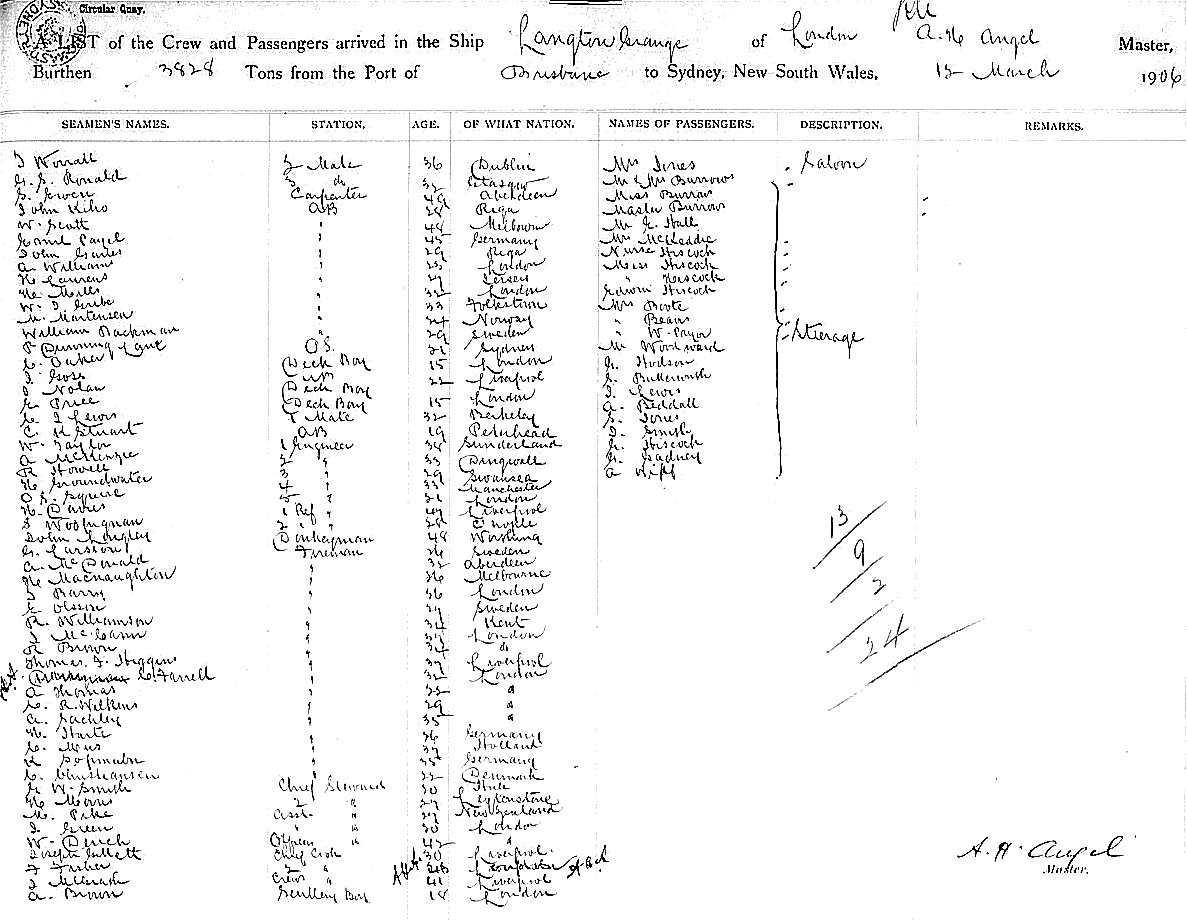 Circular Quay.
A LIST of the Crew and Passengers arrived in the Ship Langton Grange of London A. H. Angel Master,
Burthen 3828 Tons from the Port of Brisbane to Sydney, New South Wales, 12 March 1906
SEAMEN'S NAMES. STATION. AGE. OF WHAT NATION. NAMES OF PASSENGERS. DESCRIPTION. REMARKS.
J Worrall 2 Mate 36 Dublin Mrs Jones Saloon
G. S. Ronald 3 do 32 Glasgow Mr & Mrs Burrows
S. Ewen Carpenter 49 Aberdeen Miss Burrows
John Kiho AB 28 Riga Master Burrows
W. Scott " 48 Melbourn Mr G. Hall
Emil Pagel " 45 Germany Mrs McLeddie
John " 29 Riga Nurse Hiscock
A. Williams " 25 London Miss Hiscock
H. Laurens " 27 Jersey " Hiscock
H. Mills " 32 London Edwin Hiscock
W. J. " 33 Mrs Boote
M. Mortensen " 24 Norway " Bears
William Backman " 29 Sweden " W. Payor
P Dunning Lane O.S. 21 Sydney Mr Woodward Steerage
C. Baker Deck Boy 15 London G. Hodson
J. Goss 22 Liverpool S. Butterworth
J. Nolan Deck Boy J. Lewis
G. Price Deck Boy 15 London A. Beddall
C. J Lewis 1 Mate 32 Berkeley S. Jones
C. H Stuart AB 19 Peterhead J. Smith
W. Taylor 1 Engineer 38 Sunderland G. Hiscock
A McKenzie 2 " 33 Dingwall G. Gadney
R Howell 3 " 29 Swansea A
H Groundwater 4 " Manchester
O. S. Squire 5 " 21 London
H. Davies 1 Ref " Liverpool
J 2 " 28
John Longley Donkeyman 48 Worthing
G. Larsson Fireman 26 Sweden
A. McDonald " 32 Aberdeen
H. Macnaughton " 26 Melbourne
J Barry " 36 London
E Olsson " 27 Sweden
R. Williamson " 34 Kent
J McCann " London
R Brown " 34 do
Thomas. F. Higgins " 37 Liverpool
C. Farrell " 32 London
A Thomas " 22 "
C. R. Wilkins " 29 "
A. Sackley " 35 "
H. " 26 Germany
C. " 37 Holland
" Germany
C. Christiansen " 22 Denmark
G W. Smith Chief Steward 30 Hull
H Morris 2 " 27 Leytonstone
M. Pike Asst. " 27 New Zealand
J. Green " " 30 London
W. Dench Officers " 42 "
Joseph Chief Cook 30 Liverpool
J Fisher 2 "
J McGrath Crews " 41 Liverpool
A. Brown Scullery Boy 18 London
13
9
2
24
A. H. Angel
Master.